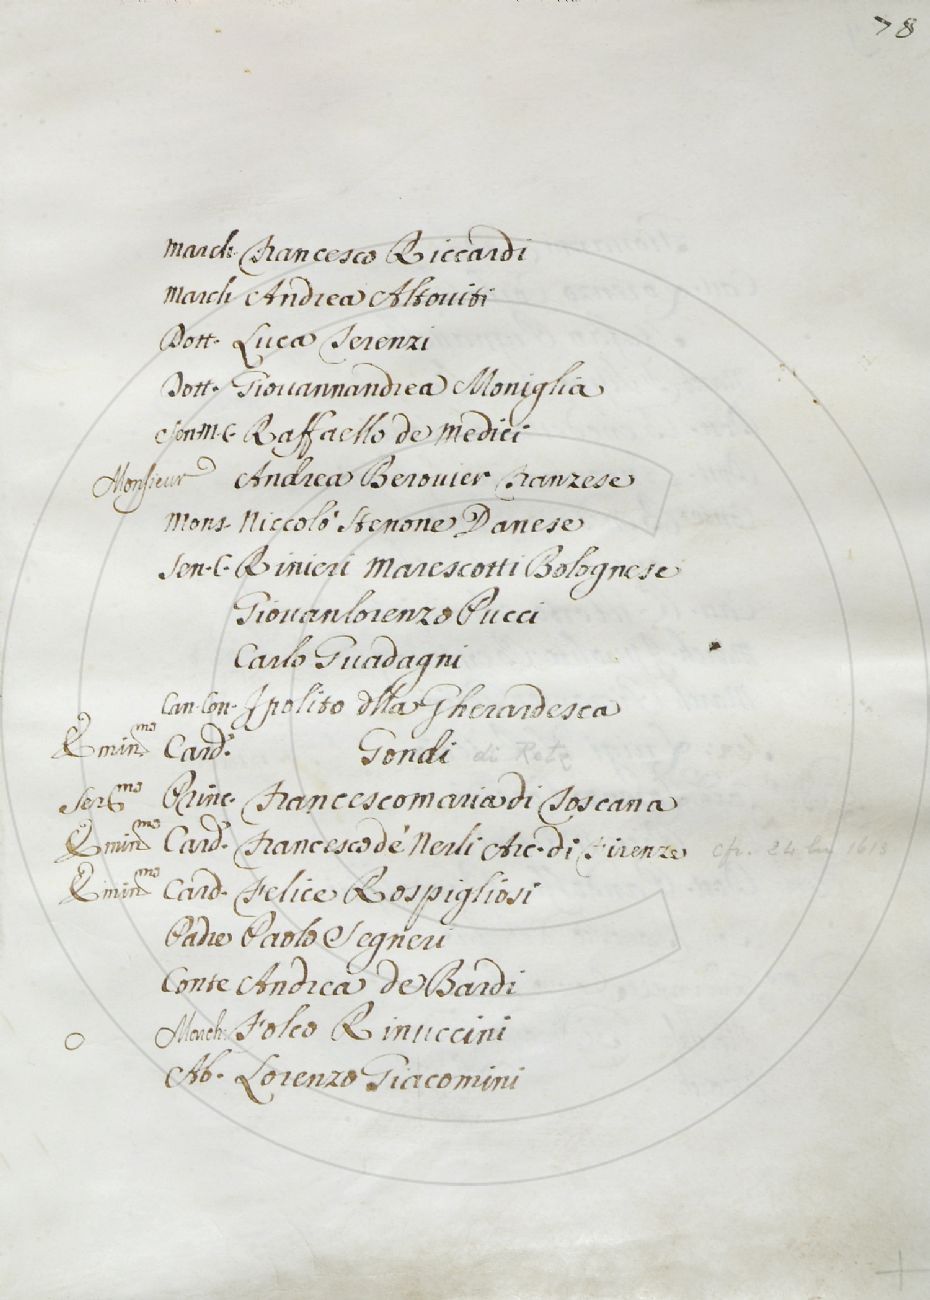 78
March: Francesco Riccardi
March Andrea Altoviti
Dott. Luca Terenzi
Dott. Giovannandrea Moniglia
Sen. M. C. Raffaello de Medici
Monsieur Andrea Berouier Franzese
Mons. Niccolò Stenone Danese
Sen. C. Rinieri Marescotti Bolognese
Giovanlorenzo Pucci
Carlo Guadagni
Can. Con. Ipolito dlla Gherardesca
Emin.mo Card.e Gondi di Retz
Ser.mo Princ. Francescomaria di Toscana
Emin.mo Card.e Francesco de' Nerli Arc. di Firenze
Emin.mo Card. Felice Rospigliosi
Padre Paolo Segneri
Conte Andrea de Bardi
March: Folco Rinuccini
Ab. Lorenzo Giacomini